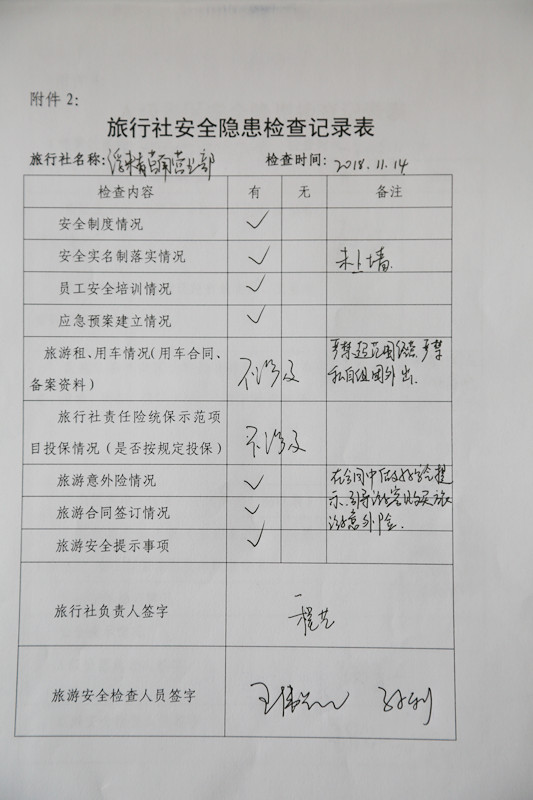 附件 2：
旅行社安全隐患检查记录表
旅行社名称： 营业部 检查时间： 2018.11.14
检查内容 有 无 备注
安全制度情况 ✓
安全实名制落实情况 ✓ 未上墙
员工安全培训情况 ✓
应急预案建立情况 ✓
旅游租、用车情况（用车合同、
备案资料） 不涉及
严禁超范围经营，严禁
私自组团外出.
旅行社责任险统保示范项
目投保情况（是否按规定投保） 不涉及
旅游意外险情况 ✓
在合同中做好 提
示、引导游客购买旅
游意外险.
旅游合同签订情况 ✓
旅游安全提示事项 ✓
旅行社负责人签字 程艺
旅游安全检查人员签字